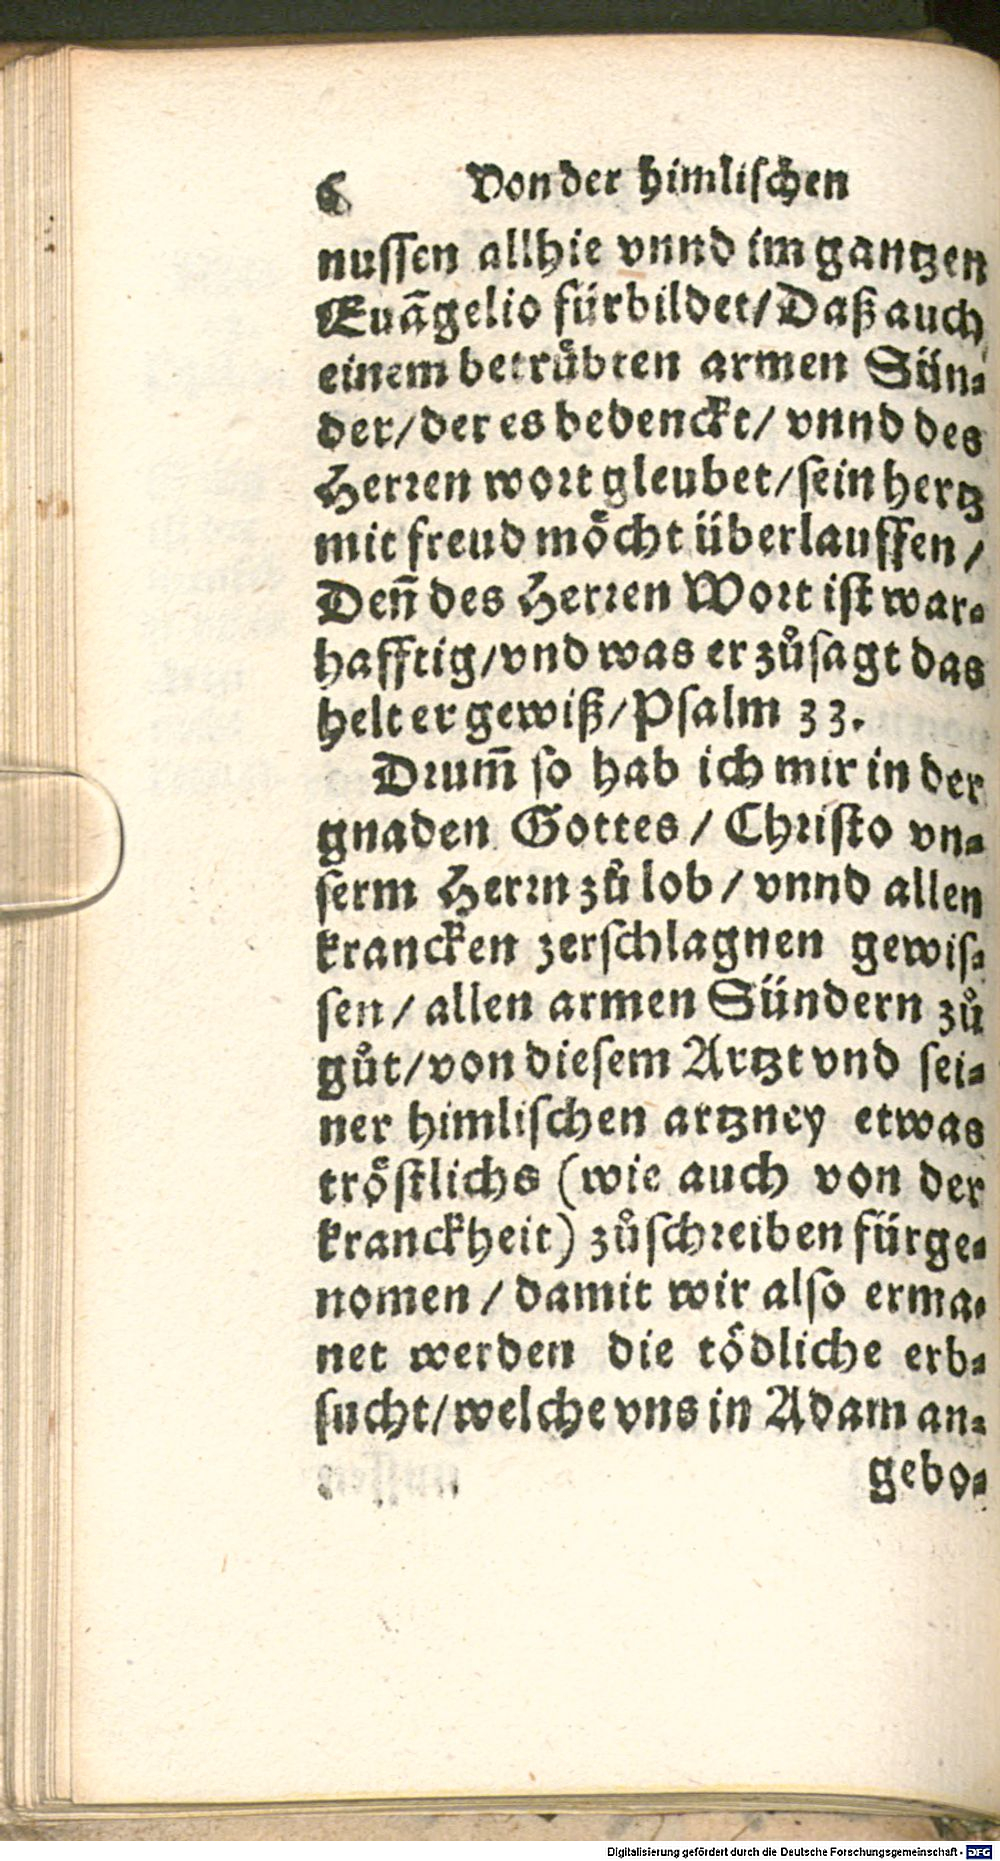 6 Von der himlischen
nussen allhie vnnd im gantzen
Euãgelio fürbildet/Daß auch
einem betrübten armen Sün-
der/der es bedenckt/ vnnd des
Herren wort gleubet/sein hertz
mit freud möcht überlauffen/
Deñ des Herren Wort ist war-
hafftig/vnd was er zůsagt das
helt er gewiß/Psalm 33.
Drum̃ so hab ich mir in der
gnaden Gottes/ Christo vn-
serm Herrn zů lob/ vnnd allen
krancken zerschlagnen gewis-
sen/ allen armen Sündern zů
gůt/von diesem Artzt vnd sei-
ner himlischen artzney etwas
tröstlichs (wie auch von der
kranckheit) zůschreiben fürge-
nomen/ damit wir also erma-
net werden die tödliche erb-
sucht/welche vns in Adam an-
gebo-
Digitalisierung gefördert durch die Deutsche Forschungsgemeinschaft - DFG